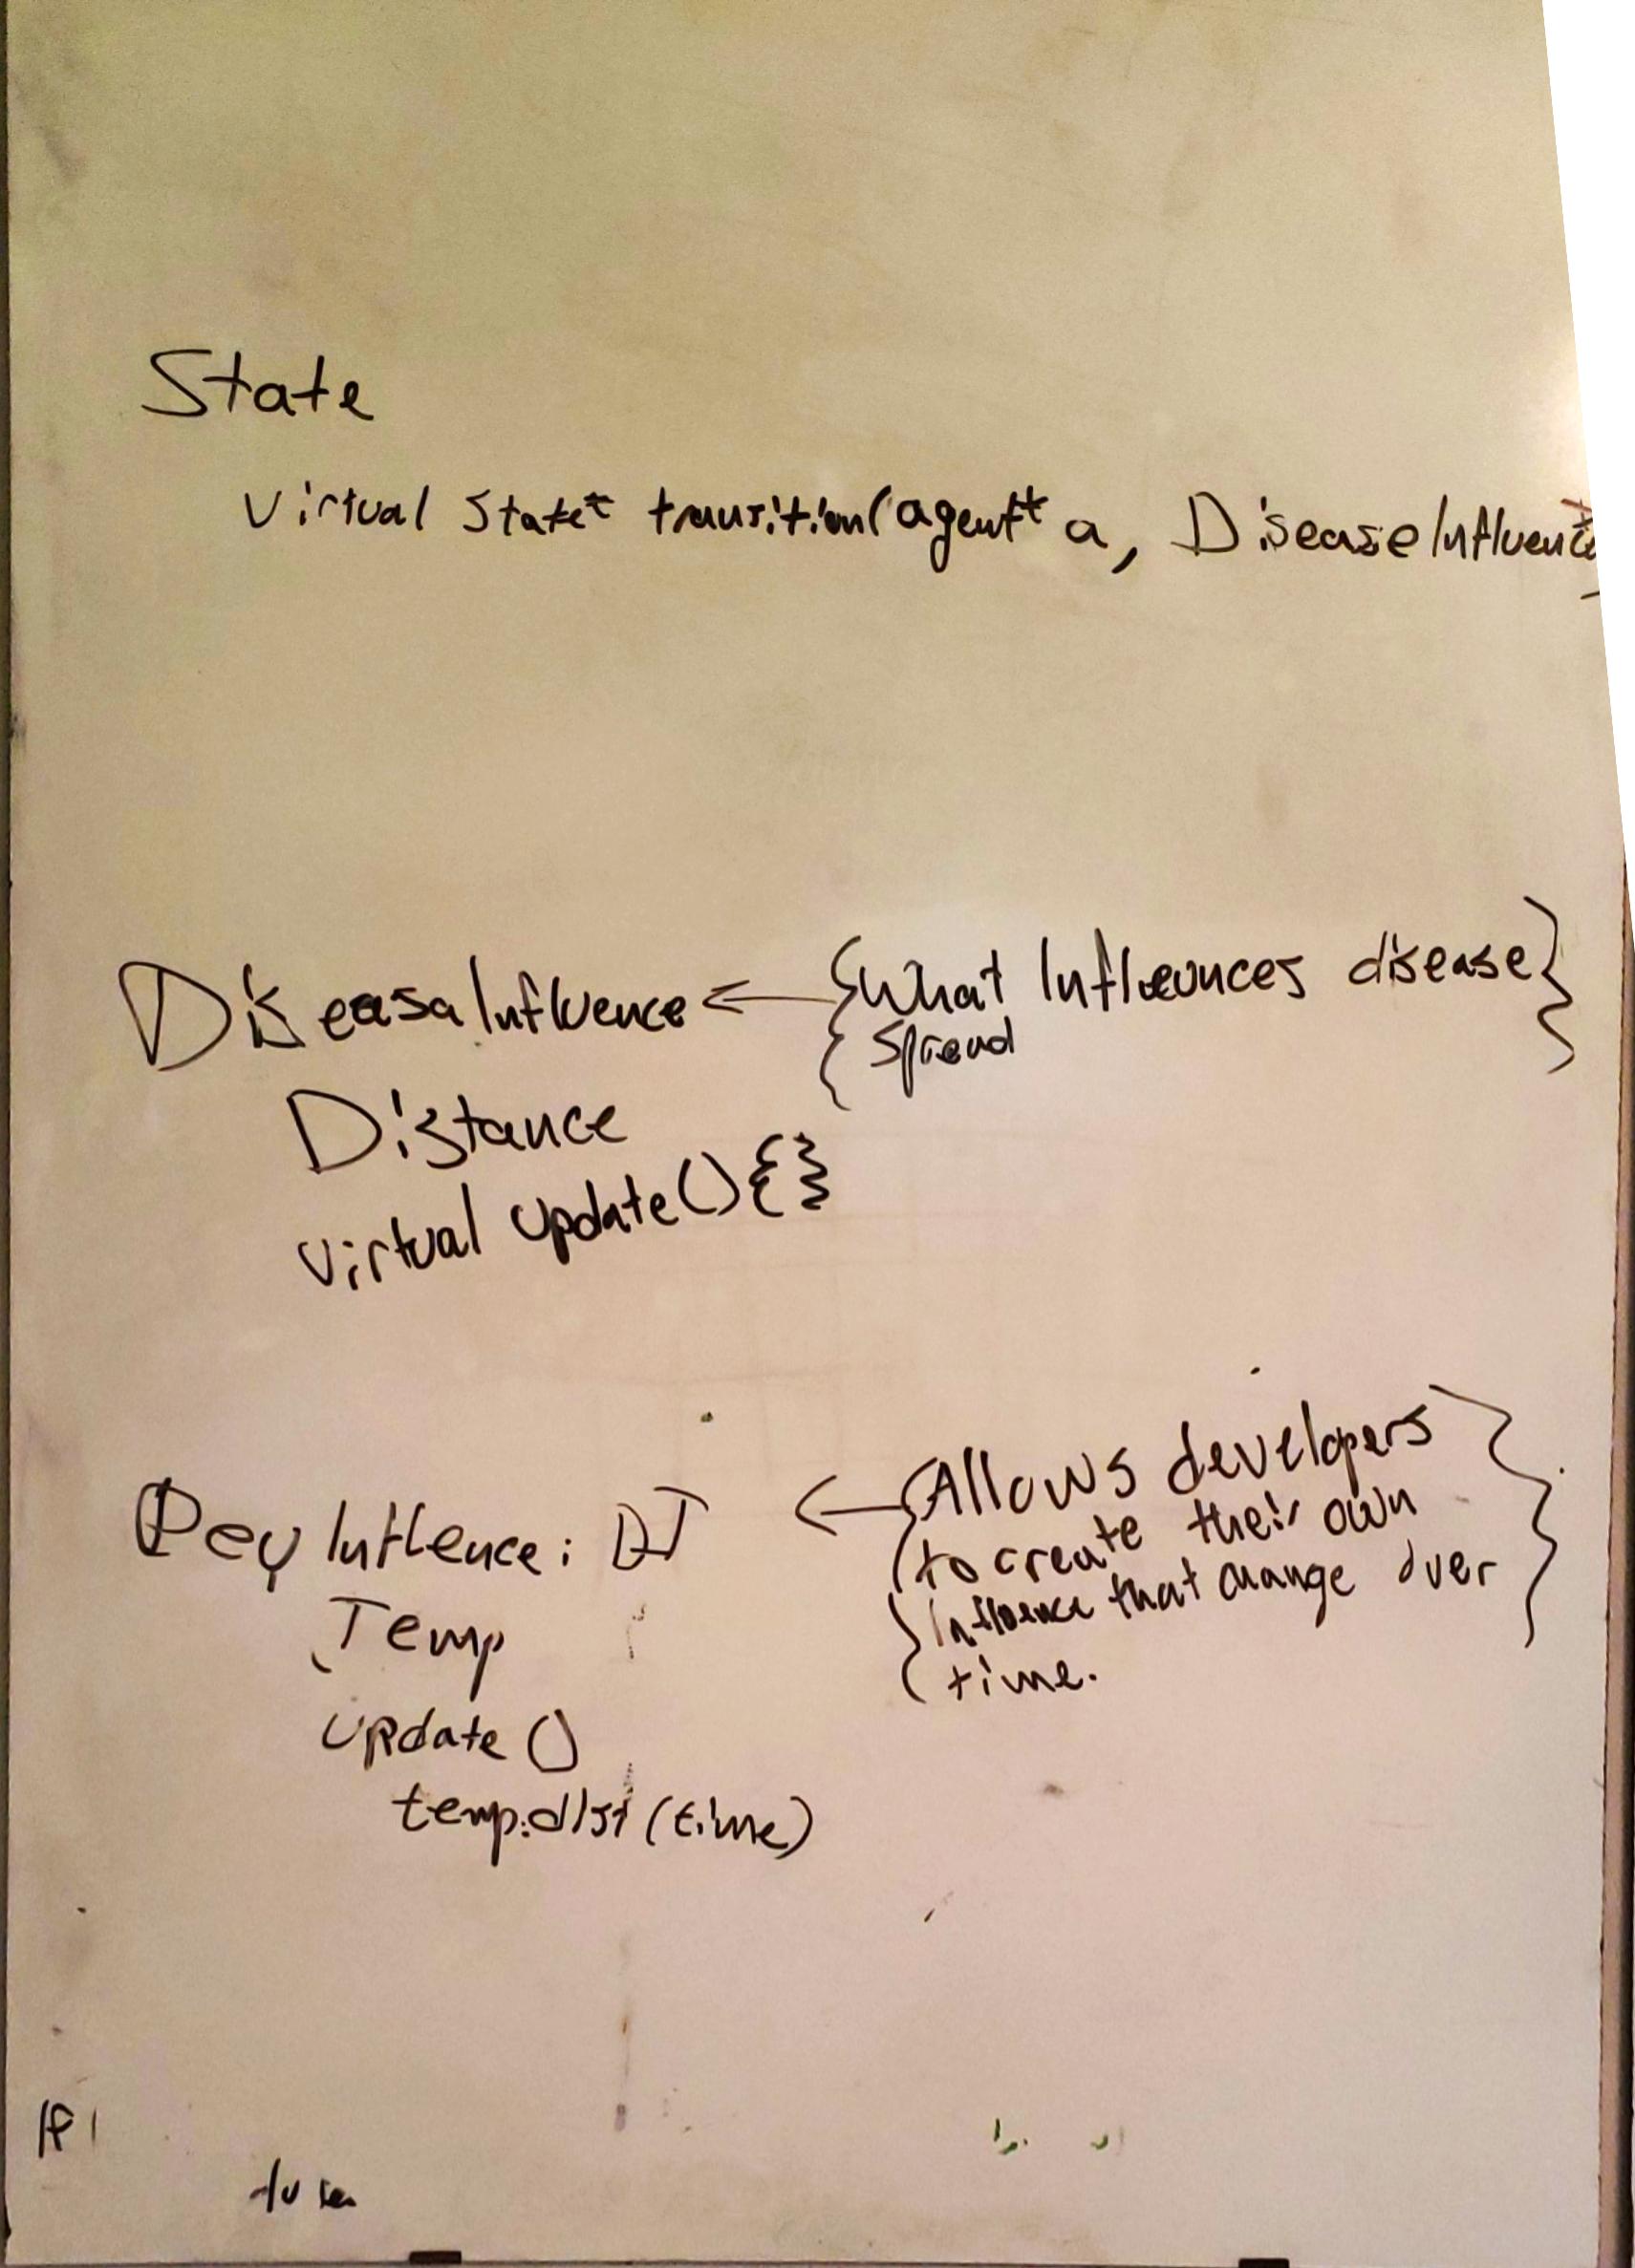 State
Virtual State* transition(agent* a, DiseaseInfluence
DiseaseInfluence ← {What Influences disease}
{spread}
Distance
virtual update(){}
Dev Inflence: DI ← {Allows developers
to create their own
Influence that change over
time.
Temp
update ()
temp.dist(time)